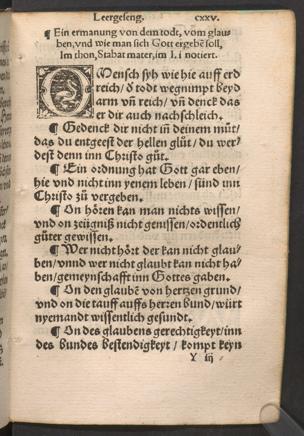 Leergeseng. cxxv.
¶ Ein ermanung von dem todt, vom glau⸗
ben, vnd wie man sich Gott ergebē soll,
Im thon, Stabat mater, im l. i notiert.
O Mensch syh wie hie auff erd
reich / ď todt wegnimpt beyd
arm vn̄ reich / vn̄ denck das
er dir auch nachschleich.
¶ Gedenck dir nicht in̄ deinem můt /
das du entgeest der hellen glůt / du wer⸗
dest denn inn Christo gůt.
¶ Ein ordnung hat Gott gar eben /
hie vnd nicht inn yenem leben / sünd inn
Christo zů vergeben.
¶ On hören kan man nichts wissen /
vnd on zeügniß nicht genissen / ordentlich
gůter gewissen.
¶ Wer nicht hört der kan nicht glau⸗
ben / vnnd wer nicht glaubt kan nicht ha⸗
ben / gemeynschafft inn Gottes gaben.
¶ On den glaubē von hertzen grund /
vnd on die tauff auffs herren bund / würt
nyemandt wissentlich gesund.
¶ On des glaubens gerechtigkeyt / inn
des bundes bestendigkeyt / kompt keyn
Y iij